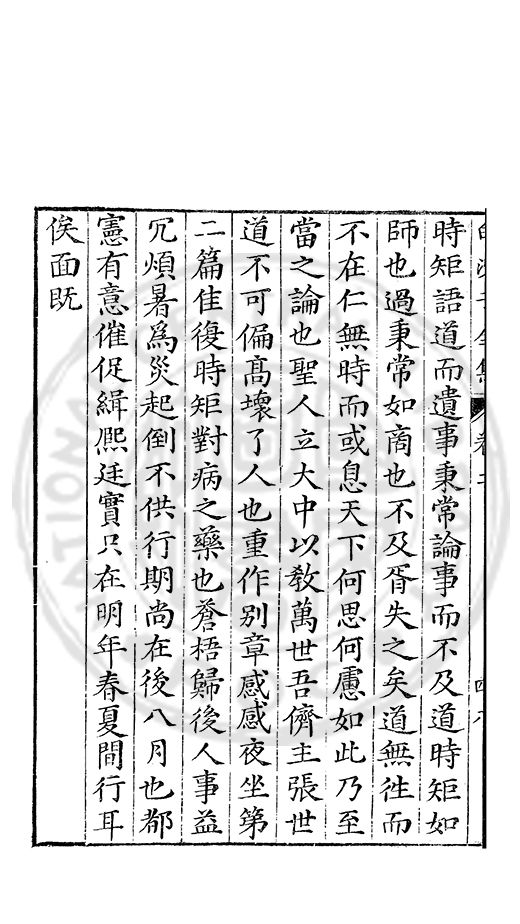 時矩語道而遺事秉常論事而不及道時矩如
師也過秉常如商也不及胥失之矣道無徃而
不在仁無時而或息天下何思何慮如此乃至
當之論也聖人立大中以敎萬世吾儕主張世
道不可偏高壞了人也重作别章感感夜坐第
二篇佳復時矩對病之藥也蒼梧歸後人事益
冗煩暑爲災起倒不供行期尚在後八月也都
憲有意催促緝熈廷實只在明年春夏間行耳
俟面既